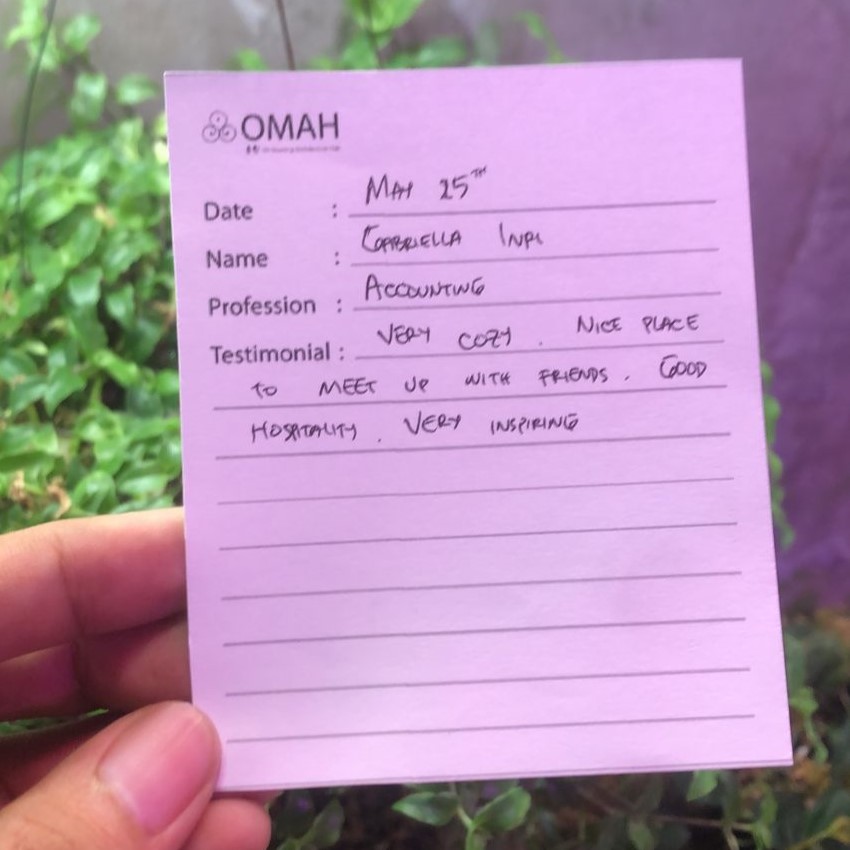 OMAH
Date : MAY 25TH
Name : GABRIELLA
Profession : ACCOUNTING
Testimonial : VERY COZY . NICE PLACE
TO MEET UP WITH FRIENDS . GOOD
HOSPITALITY . VERY INSPIRING